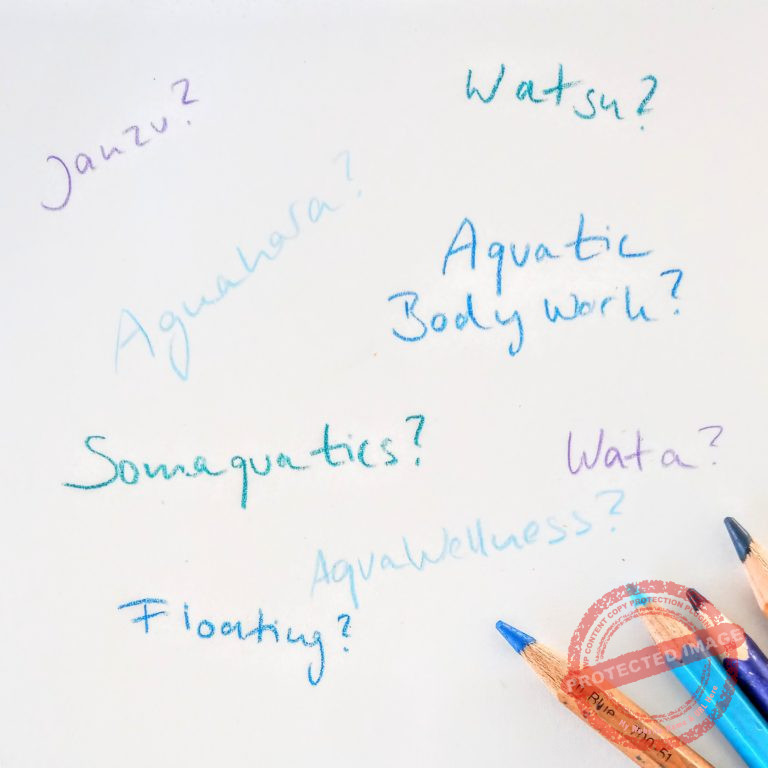 Janzu?
Watsu?
Aquahara?
Aquatic
Body Work?
Somaquatics?
Wata?
AquaWellness?
Floating?
WP CONTENT COPY PROTECTION PLUGIN
PROTECTED IMAGE
Blue